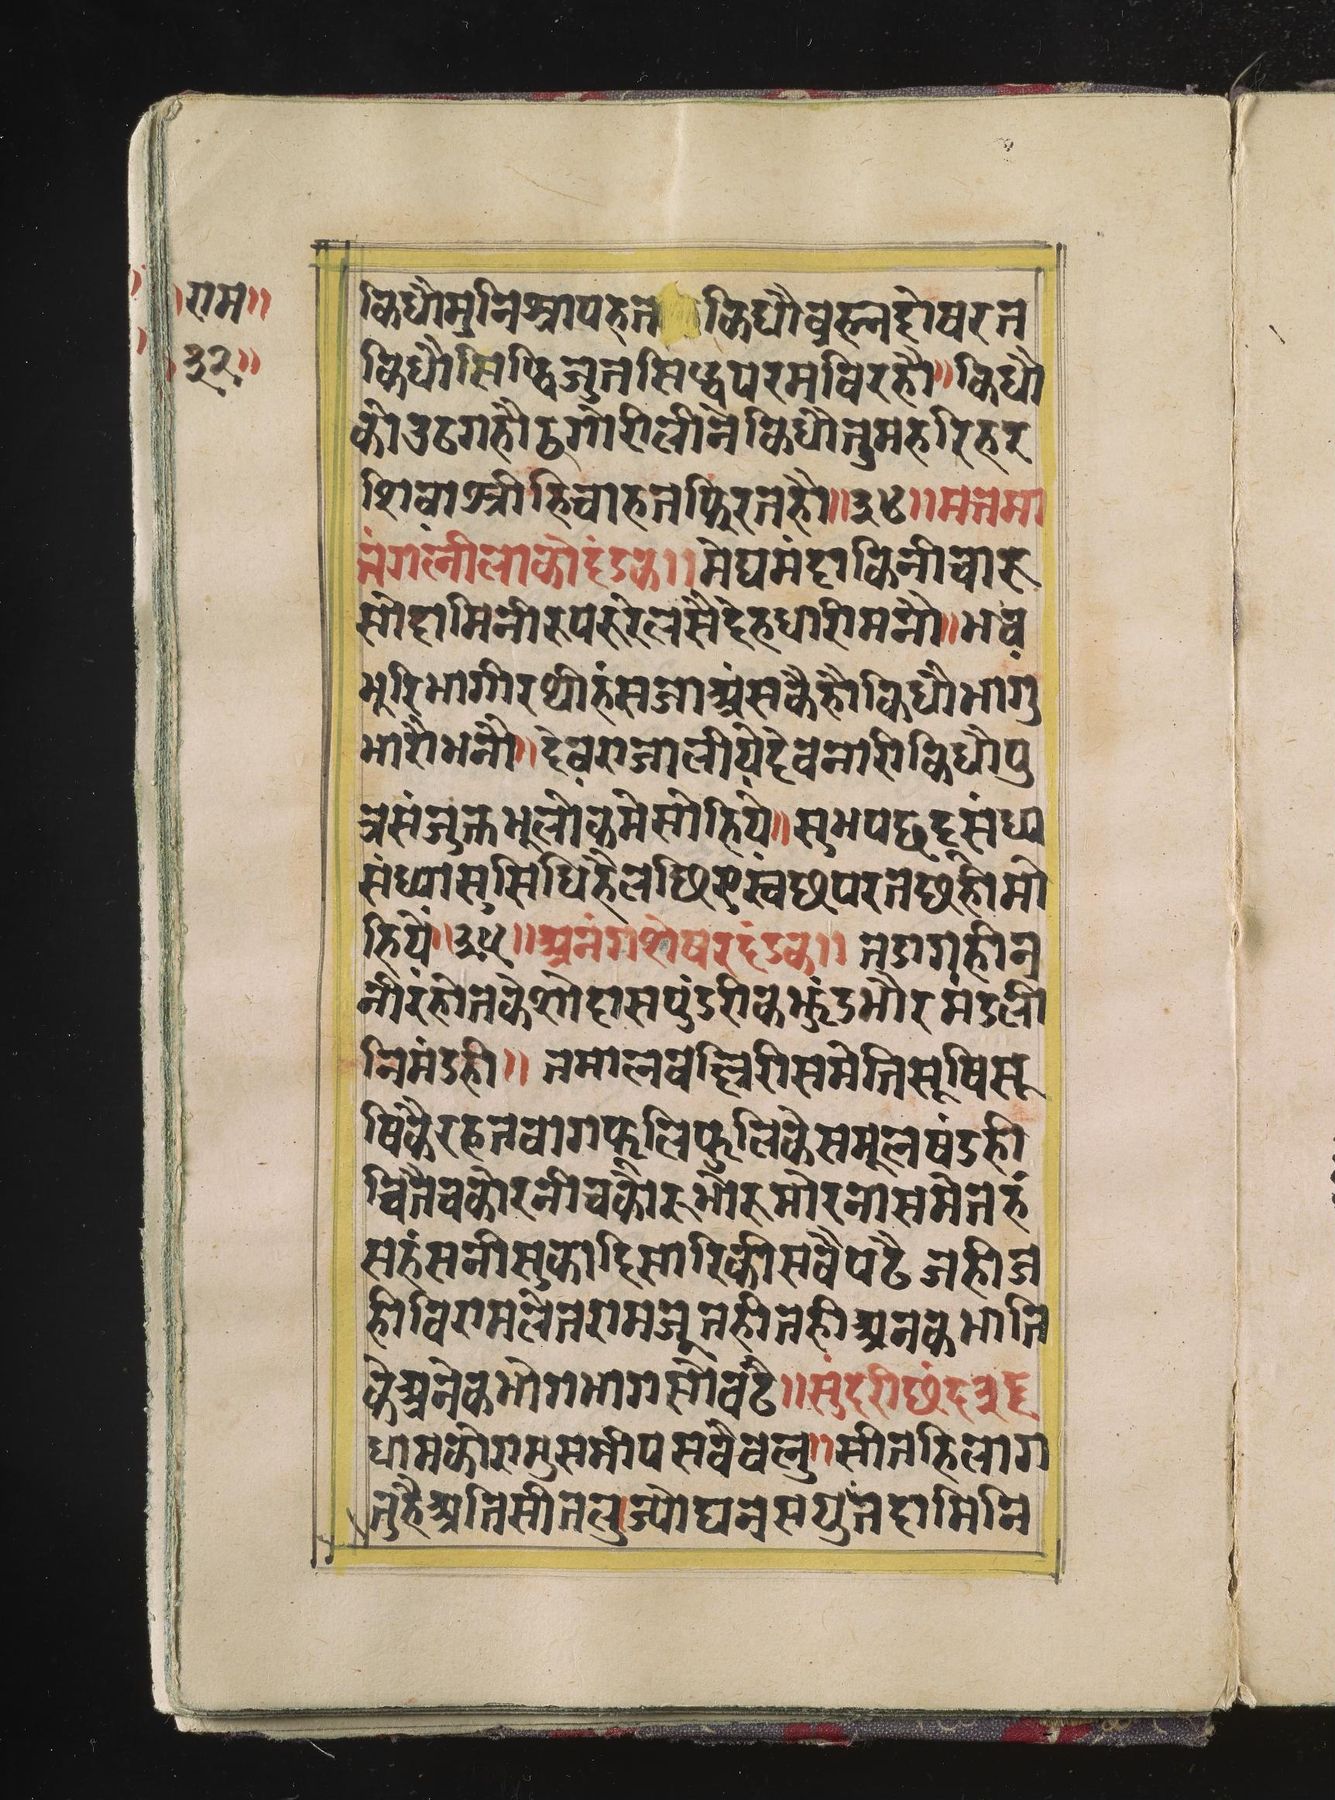 राम॥
३२॥
किधौमुनिश्रापहत किधौब्रह्मदोषरत
किधौसिद्धिजुतसिद्धपरमविरहौ॥किधौ
कोउठगहौठगौरीलीनेकिधौतुमहरिहर
शिवाश्रीहिचाहतफिरतहौ॥३४॥मतमा
तंगलीलाकौदंडक॥मेघमंदाकिनीचारु
सोदामिनीरुपरुरेलसैदेहधारीमनौ॥भव
भूरिभागीरथीहंसजाअंसकैहौकिधौभागु
भारौभनौ॥देवराजालीयेदेवनारीकिधौपु
त्रसंजुक्तभूलोकमेसोहिये॥सुभपछदूसंध्य
संध्यासुसिधिहैलछिएस्वंछपरतछहीमो
हिये॥३५॥अनंगशेषरदंडक॥तडागहीन
नीरंहोतकेशोदासपुंडरीकझुंडभौरमंडली
निमंडही॥तमालवल्लिरीसमेतिसूषिसू
षिकैरहतबागफूलिफूलिकैसमूलषंडही
चितैचकोरनीचकोरुमोरुमोरनीसमेतहं
सहंसनीसुकादिसारिकीसवैपढै जहीज
हीविरामलेतरामजूतहीतहीअनकभाति
केअनेकभोगभागसौबंटै॥सुंदरीछंद३६
घामकौरामुसमीपसवैवलु॥सीतहिलाग
तुहैअतिसीतलुज्यौघनसयुतदामिनि